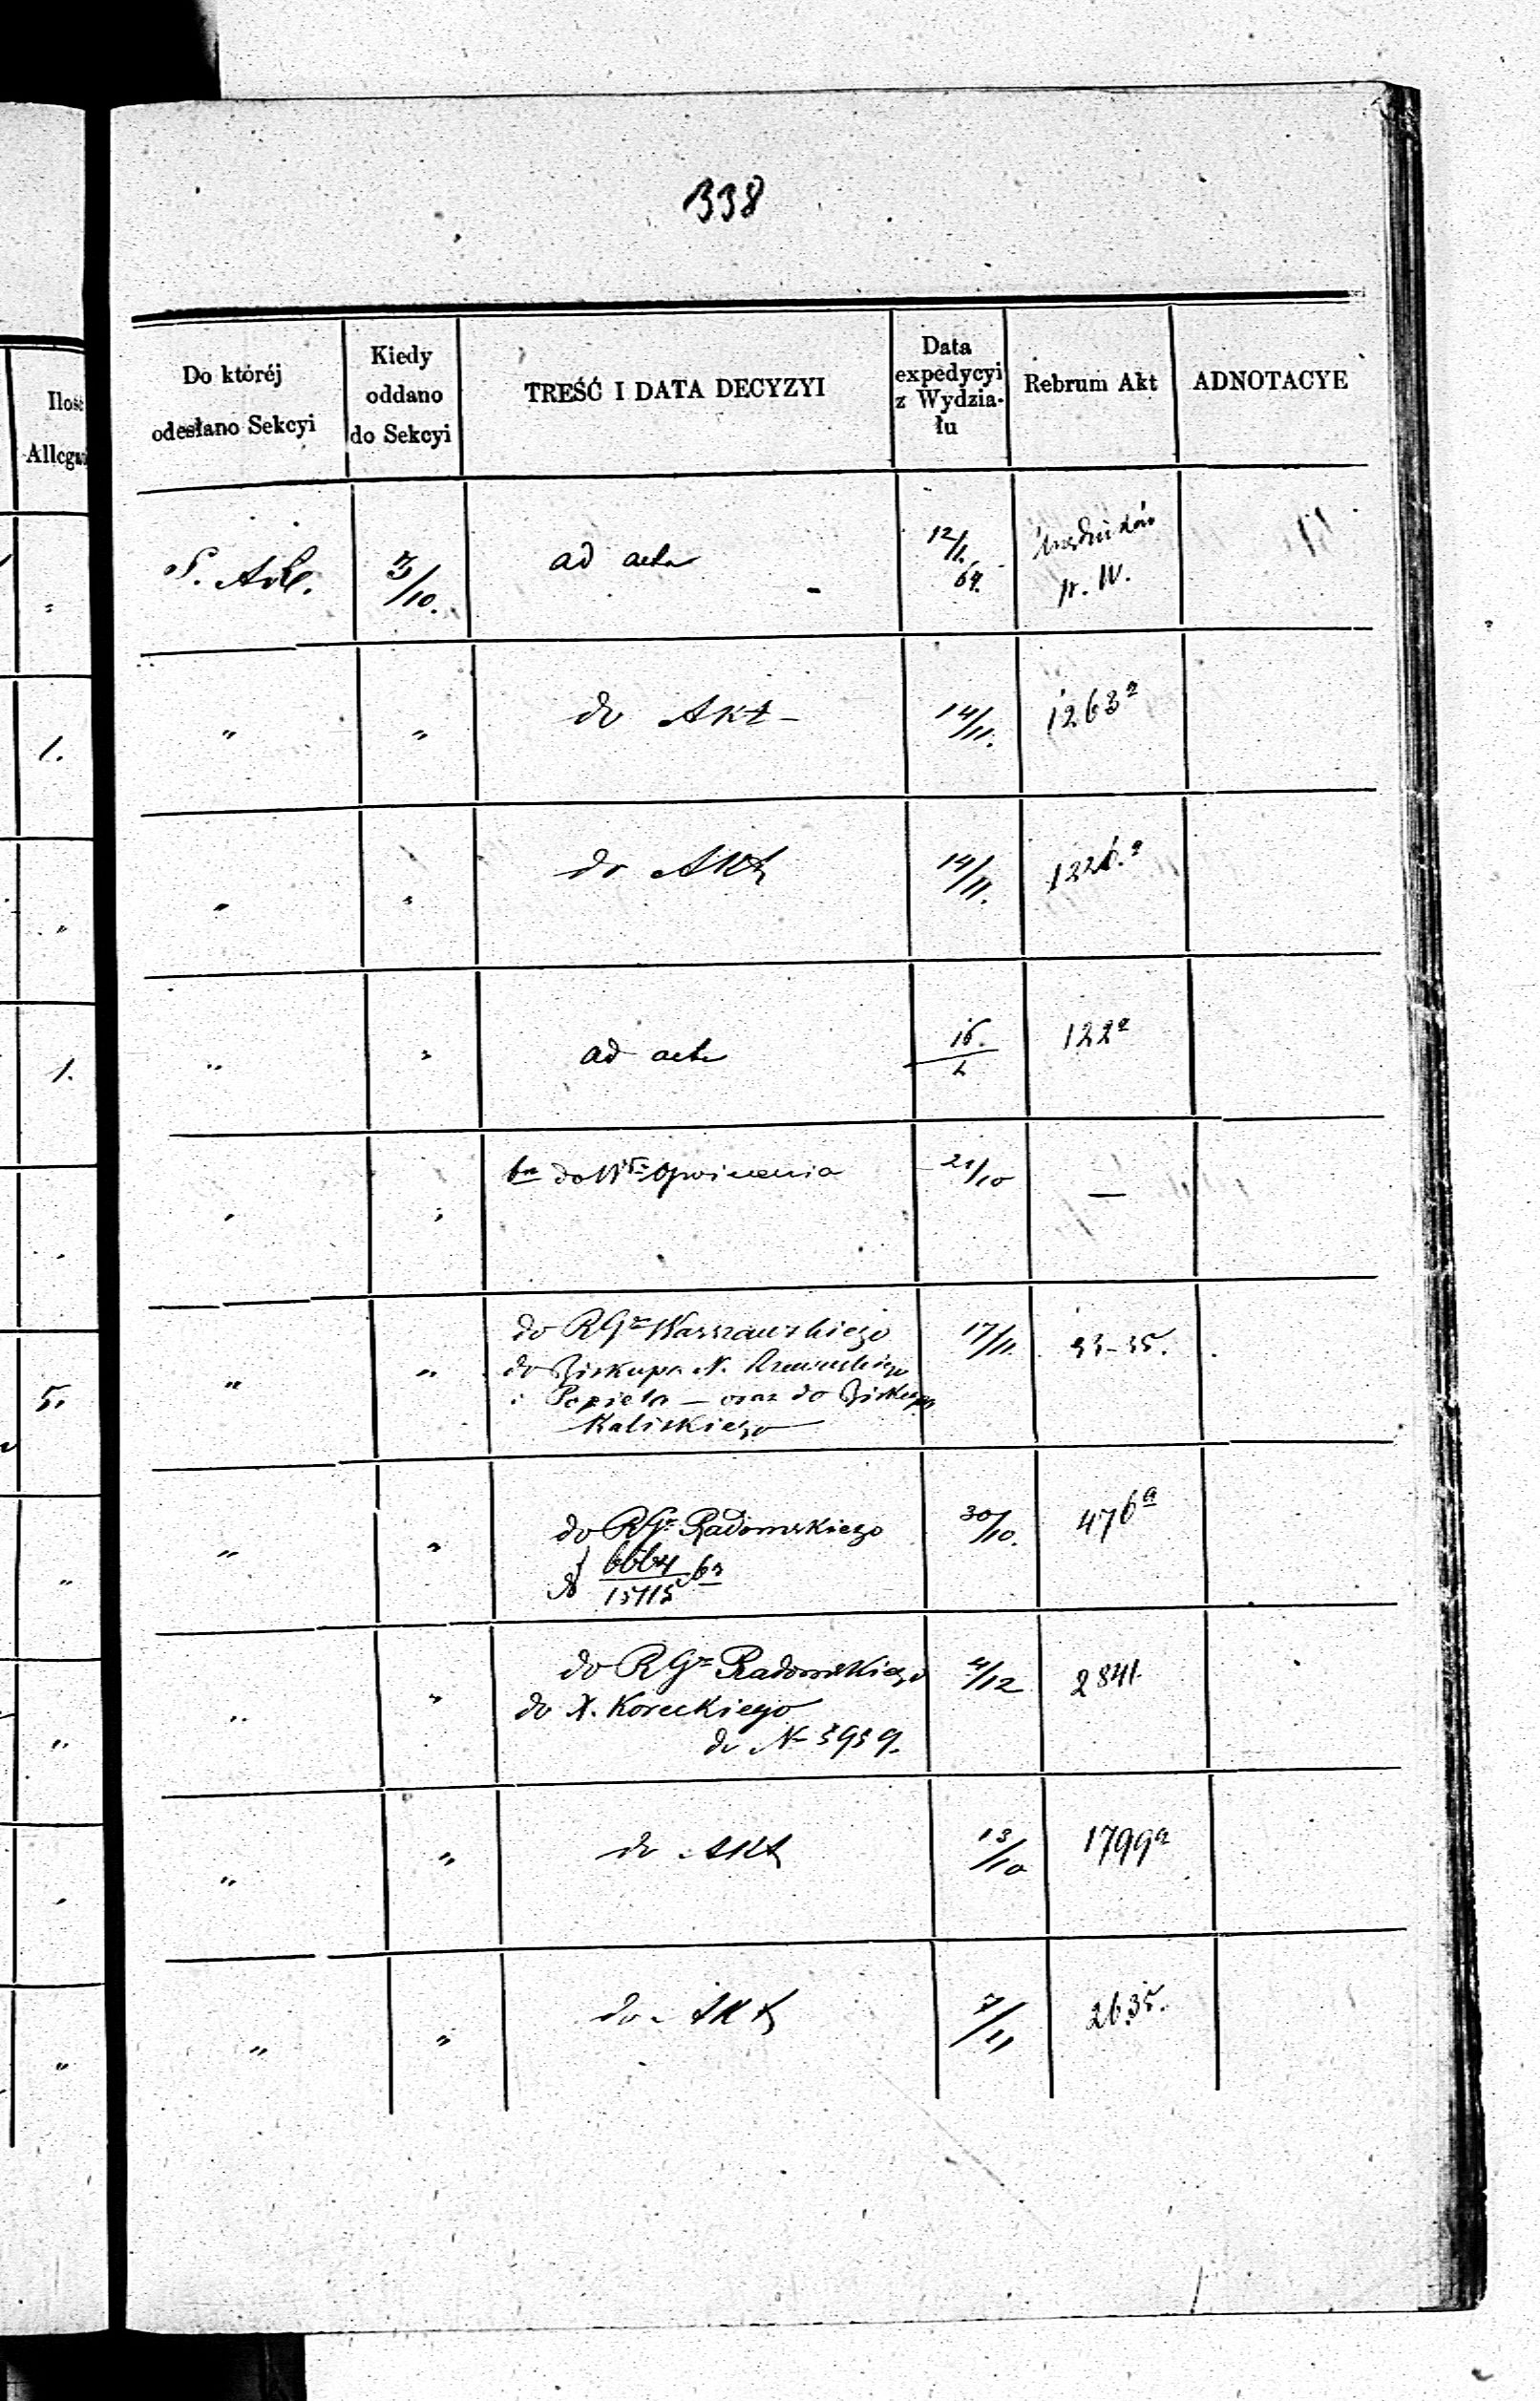 338
Ilość
Do któréj
odesłano Sekcyi
Kiedy
oddano
do Sekcyi
TREŚĆ I DATA DECYZYI
Data
expedycyi
z Wydzia-
łu
Rebrum Akt
ADNOTACYE
3/10.
ad acta
12/1.
64.
N. IV.
"
"
do Akt
14/11.
1263a
1.
"
"
do Akt
14/11.
"
1.
"
"
ad acta
16.
122a
"
"
do
21/10
—
"
5.
"
"
do RGo Warszawskiego
do Biskupa
i Popiela — oraz do Biskupa
Kaliskiego
17/11.
33-35.
"
"
"
do RGo Radomskiego
6664
15115
30/10.
476a
"
"
"
do RGo Radomskiego
do X. Koreckiego
do N 5959.
4/12
2841
"
"
"
do Akt
13/10
1799a
"
"
"
do Akt
7/11
2635.